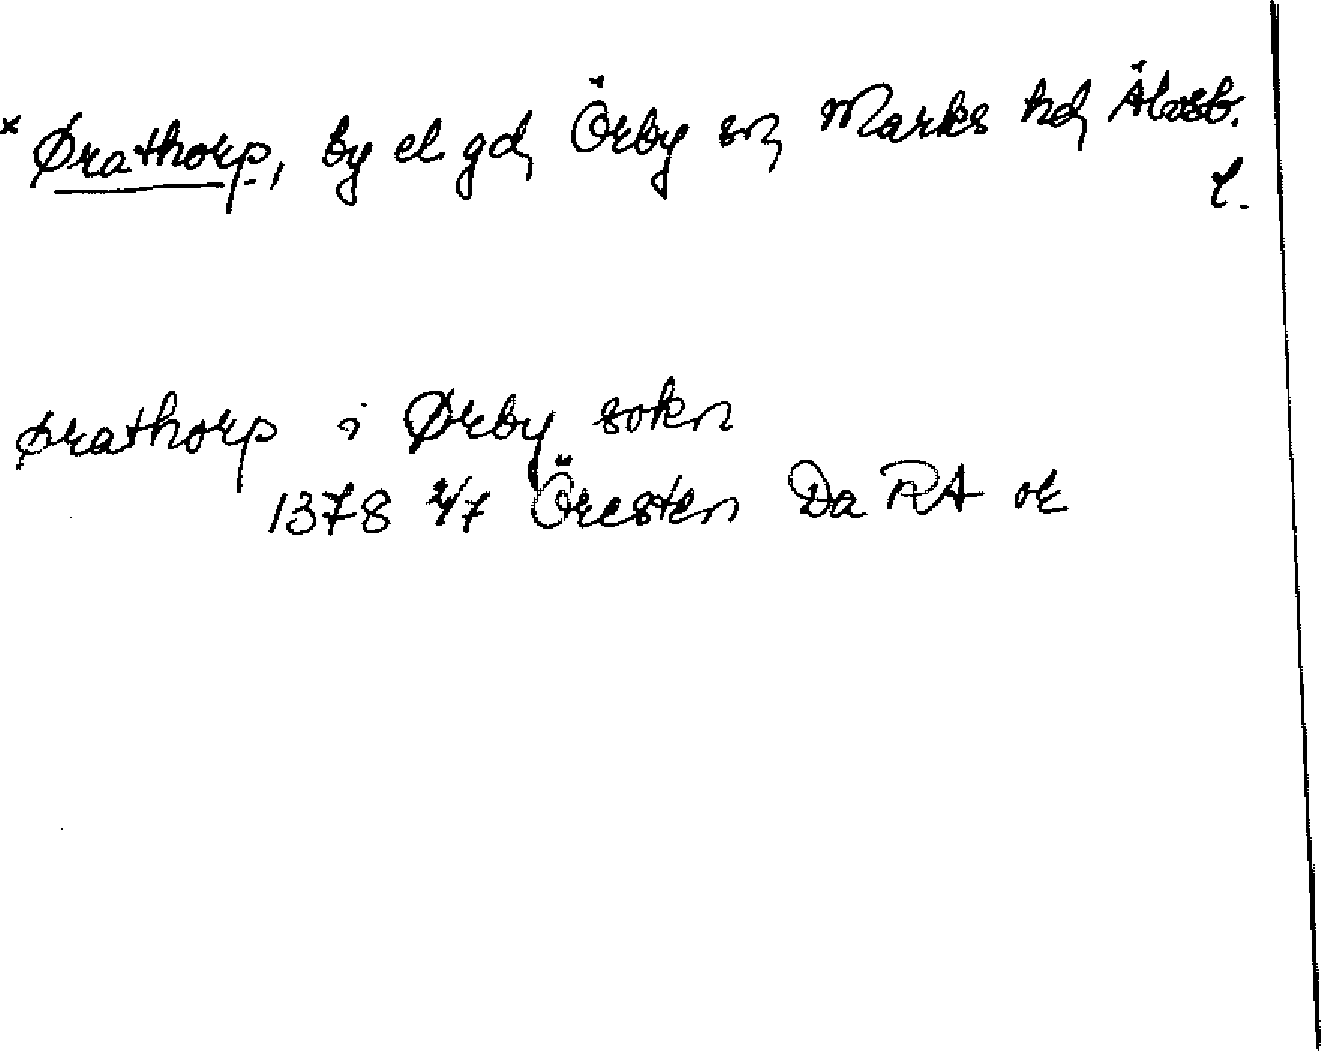 * Ørathorp, by el gd, Örby sn, Marks hd, Älvsb.
l.
ørathorp i Ørby sokn
1378 2/7 Öresten Da RA or